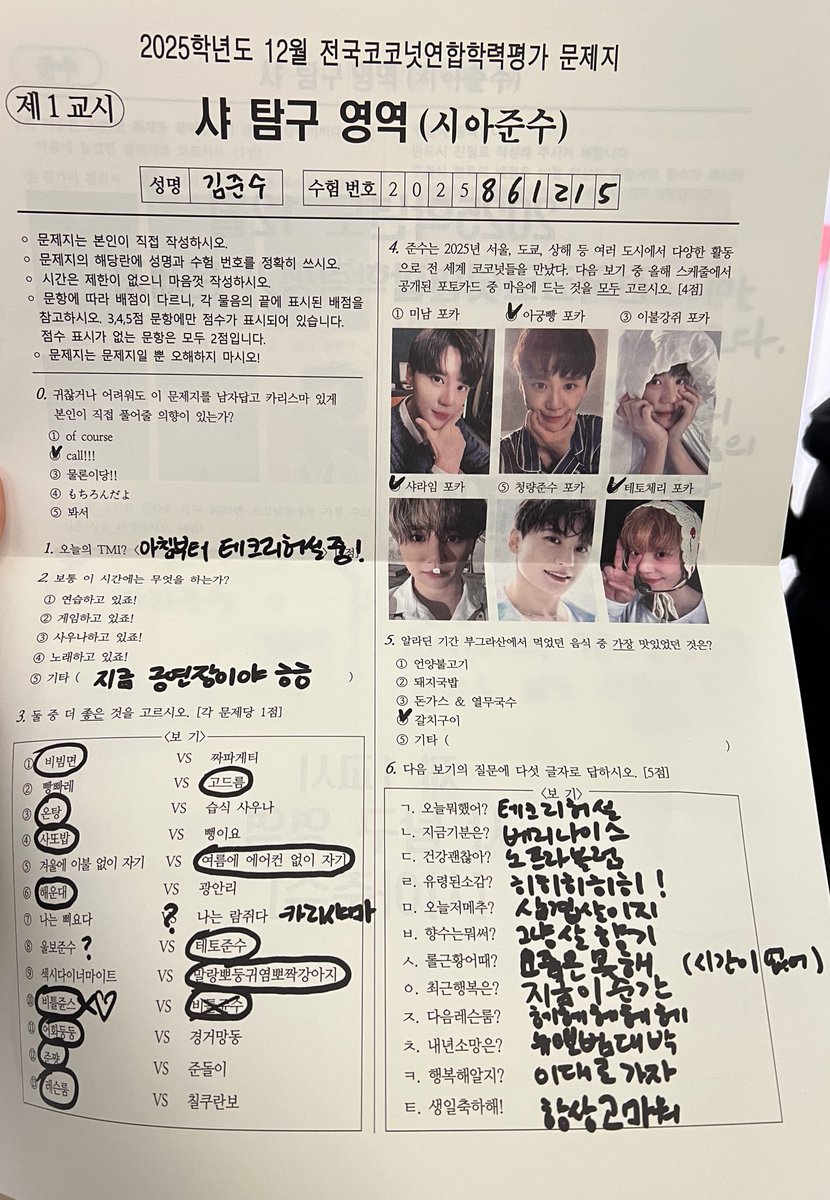 2025학년도 12월 전국코코넛연합학력평가 문제지
제 1 교시
샤 탐구 영역 (시아준수)
성명 김준수 수험 번호 2 0 2 5 8 6 1 2 1 5
◦ 문제지는 본인이 직접 작성하시오.
◦ 문제지의 해당란에 성명과 수험 번호를 정확히 쓰시오.
◦ 시간은 제한이 없으니 마음껏 작성하시오.
◦ 문항에 따라 배점이 다르니, 각 물음의 끝에 표시된 배점을
참고하시오. 3,4,5점 문항에만 점수가 표시되어 있습니다.
점수 표시가 없는 문항은 모두 2점입니다.
◦ 문제지는 문제지일 뿐 오해하지 마시오!
0. 귀찮거나 어려워도 이 문제지를 남자답고 카리스마 있게
본인이 직접 풀어줄 의향이 있는가?
① of course
② call!!!
③ 물론이당!!
④ もちろんだよ
⑤ 봐서
1. 오늘의 TMI? 아침부터 테크리허설 중!
2. 보통 이 시간에는 무엇을 하는가?
① 연습하고 있죠!
② 게임하고 있죠!
③ 사우나하고 있죠!
④ 노래하고 있죠!
⑤ 기타 ( 지금 공연장이야 흥흥 )
3. 둘 중 더 좋은 것을 고르시오. [각 문제당 1점]
<보 기>
① 비빔면 VS 짜파게티
② 빵빠레 VS 고드름
③ 온탕 VS 습식 사우나
④ 사또밥 VS 뻥이요
⑤ 겨울에 이불 없이 자기 VS 여름에 에어컨 없이 자기
⑥ 해운대 VS 광안리
⑦ 나는 삐요다 ? 나는 람쥐다 카리샤마
⑧ 울보준수 ? VS 테토준수
⑨ 섹시다이너마이트 VS 말랑뽀둥귀염뽀짝강아지
⑩ 비틀쥰스 VS 비틀쥰수
⑪ 어화둥둥 VS 경거망동
⑫ 준짱 VS 준돌이
⑬ 레슨룸 VS 칠쿠란보
4. 준수는 2025년 서울, 도쿄, 상해 등 여러 도시에서 다양한 활동
으로 전 세계 코코넛들을 만났다. 다음 보기 중 올해 스케줄에서
공개된 포토카드 중 마음에 드는 것을 모두 고르시오. [4점]
① 미남 포카 아궁빵 포카 ③ 이불강쥐 포카
샤라임 포카 ⑤ 청량준수 포카 테토체리 포카
5. 알라딘 기간 부그라산에서 먹었던 음식 중 가장 맛있었던 것은?
① 언양불고기
② 돼지국밥
③ 돈가스 & 열무국수
갈치구이
⑤ 기타 ( )
6. 다음 보기의 질문에 다섯 글자로 답하시오. [5점]
<보 기>
ㄱ. 오늘뭐했어? 테크리허설
ㄴ. 지금기분은? 베리나이스
ㄷ. 건강괜찮아? 노프라블럼
ㄹ. 유령된소감? 히히히히히!
ㅁ. 오늘저메추? 삼겹살이지
ㅂ. 향수는뭐써? 그냥살향기
ㅅ. 롤근황어때? 요즘은못해 (시간이 없어)
ㅇ. 최근행복은? 지금이순간
ㅈ. 다음레슨룸? 헤헤헤헤헤
ㅊ. 내년소망은? 뉴앨범대박
ㅋ. 행복해알지? 이대로가자
ㅌ. 생일축하해! 항상고마워